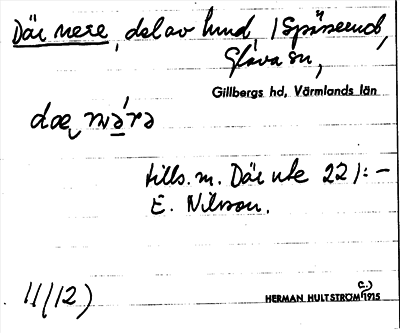 Där nere, del av hmd, i Spässerud,
Glava sn,
Gillbergs hd, Värmlands län
tills. m. Där ute 221:-
E. Nilsson.
11/12)
HERMAN HULTSTRÖM (c.) 1915